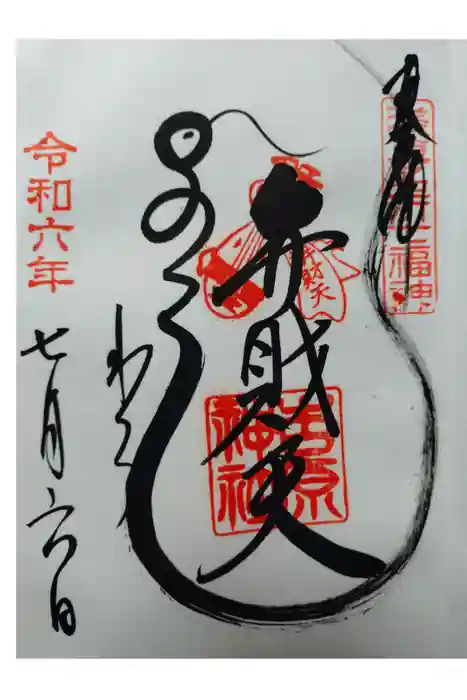 奉拝
七福神
弁財天
弁財天
吉原
神社
令和六年
七月六日